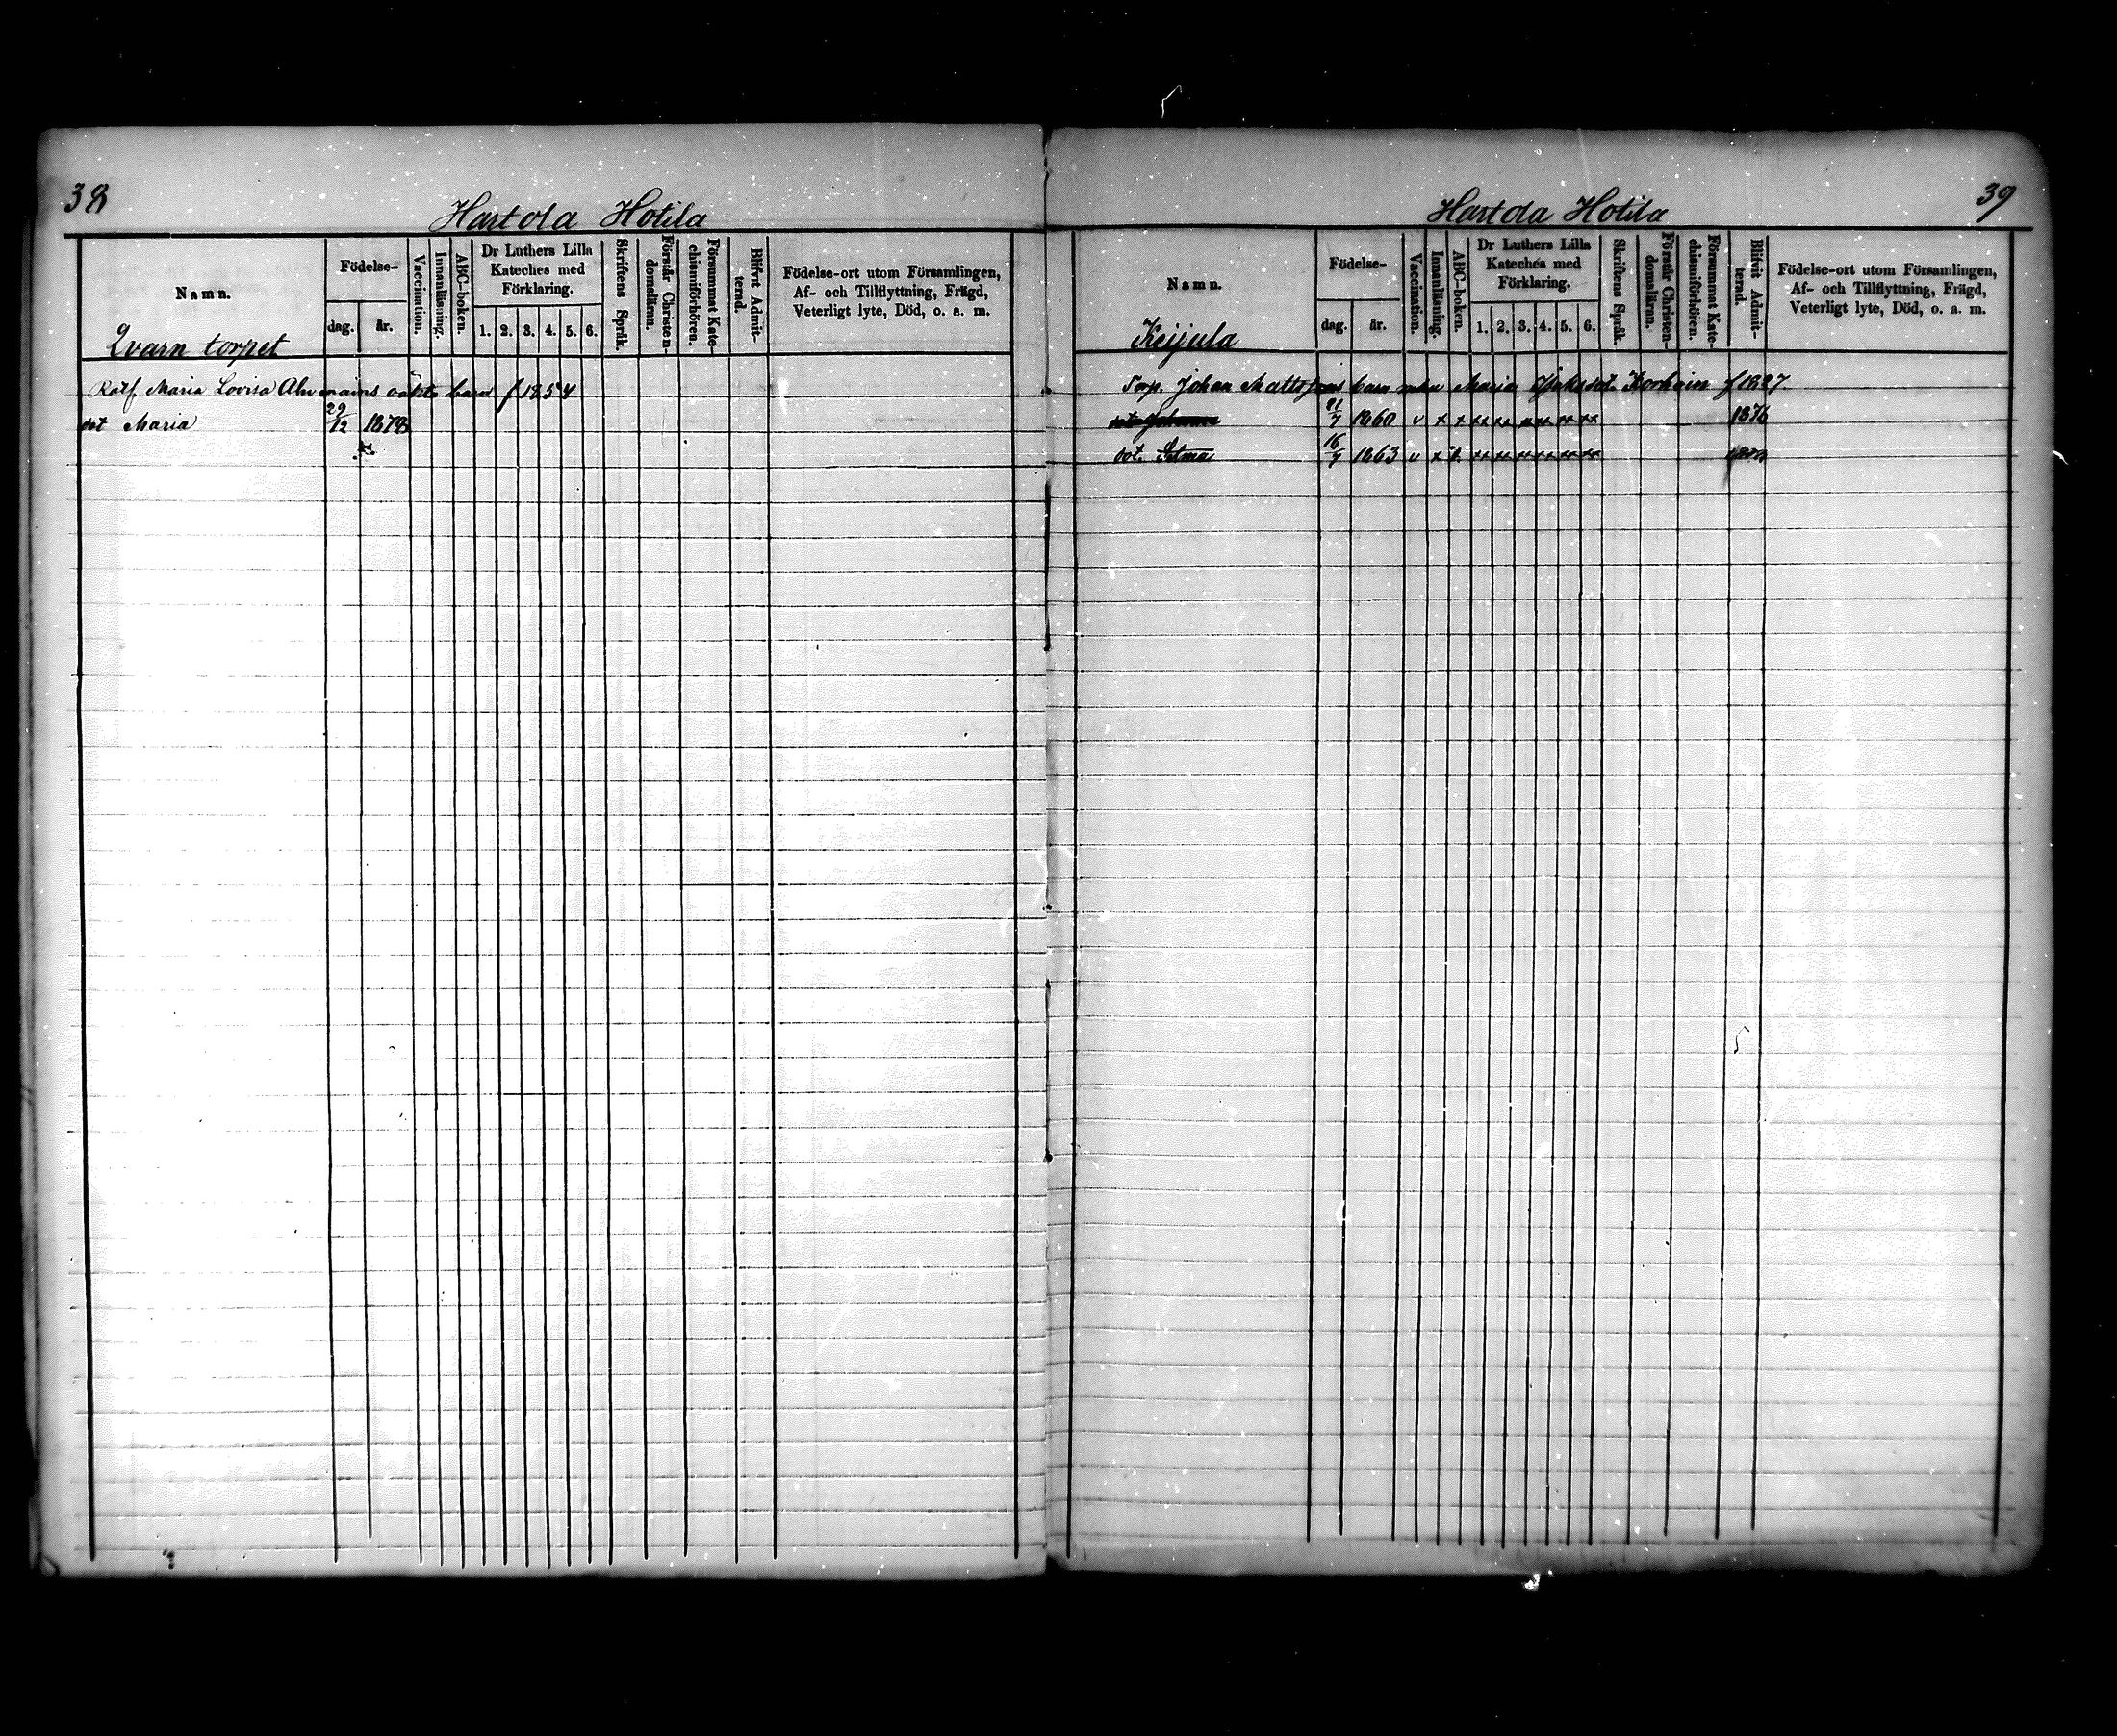 38
Hartola Hotila
Namn.
Födelse-
dag. år.
Vaccination.
Innanläsning.
ABC-boken.
Dr Luthers Lilla
Kateches med
Förklaring.
1. 2. 3. 4. 5. 6.
Skriftens Språk.
Förstår Christen-
domsläran.
Försummat Kate-
chismiförhören.
Blifvit Admit-
terad.
Födelse-ort utom Församlingen,
Af- och Tillflyttning, Frägd,
Veterligt lyte, Död, o. a. m.
Qvarn torpet
Maria Lovisa barn f 1854
dot Maria 29/12 1873
39
Hartola Hotila
Namn.
Födelse-
dag. år.
Vaccination.
Innanläsning.
ABC-boken.
Dr Luthers Lilla
Kateches med
Förklaring.
1. 2. 3. 4. 5. 6.
Skriftens Språk.
Förstår Christen-
domsläran.
Försummat Kate-
chismiförhören.
Blifvit Admit-
terad.
Födelse-ort utom Församlingen,
Af- och Tillflyttning, Frägd,
Veterligt lyte, Död, o. a. m.
Keijula
Torp. Johan Mattsons barn Maria Korhoin f 1827
dot Johanna 11/7 1860 v x x xx xx xx xx xx xx 1876
dot. Selma 16/7 1863 v x xx xx xx xx xx xx